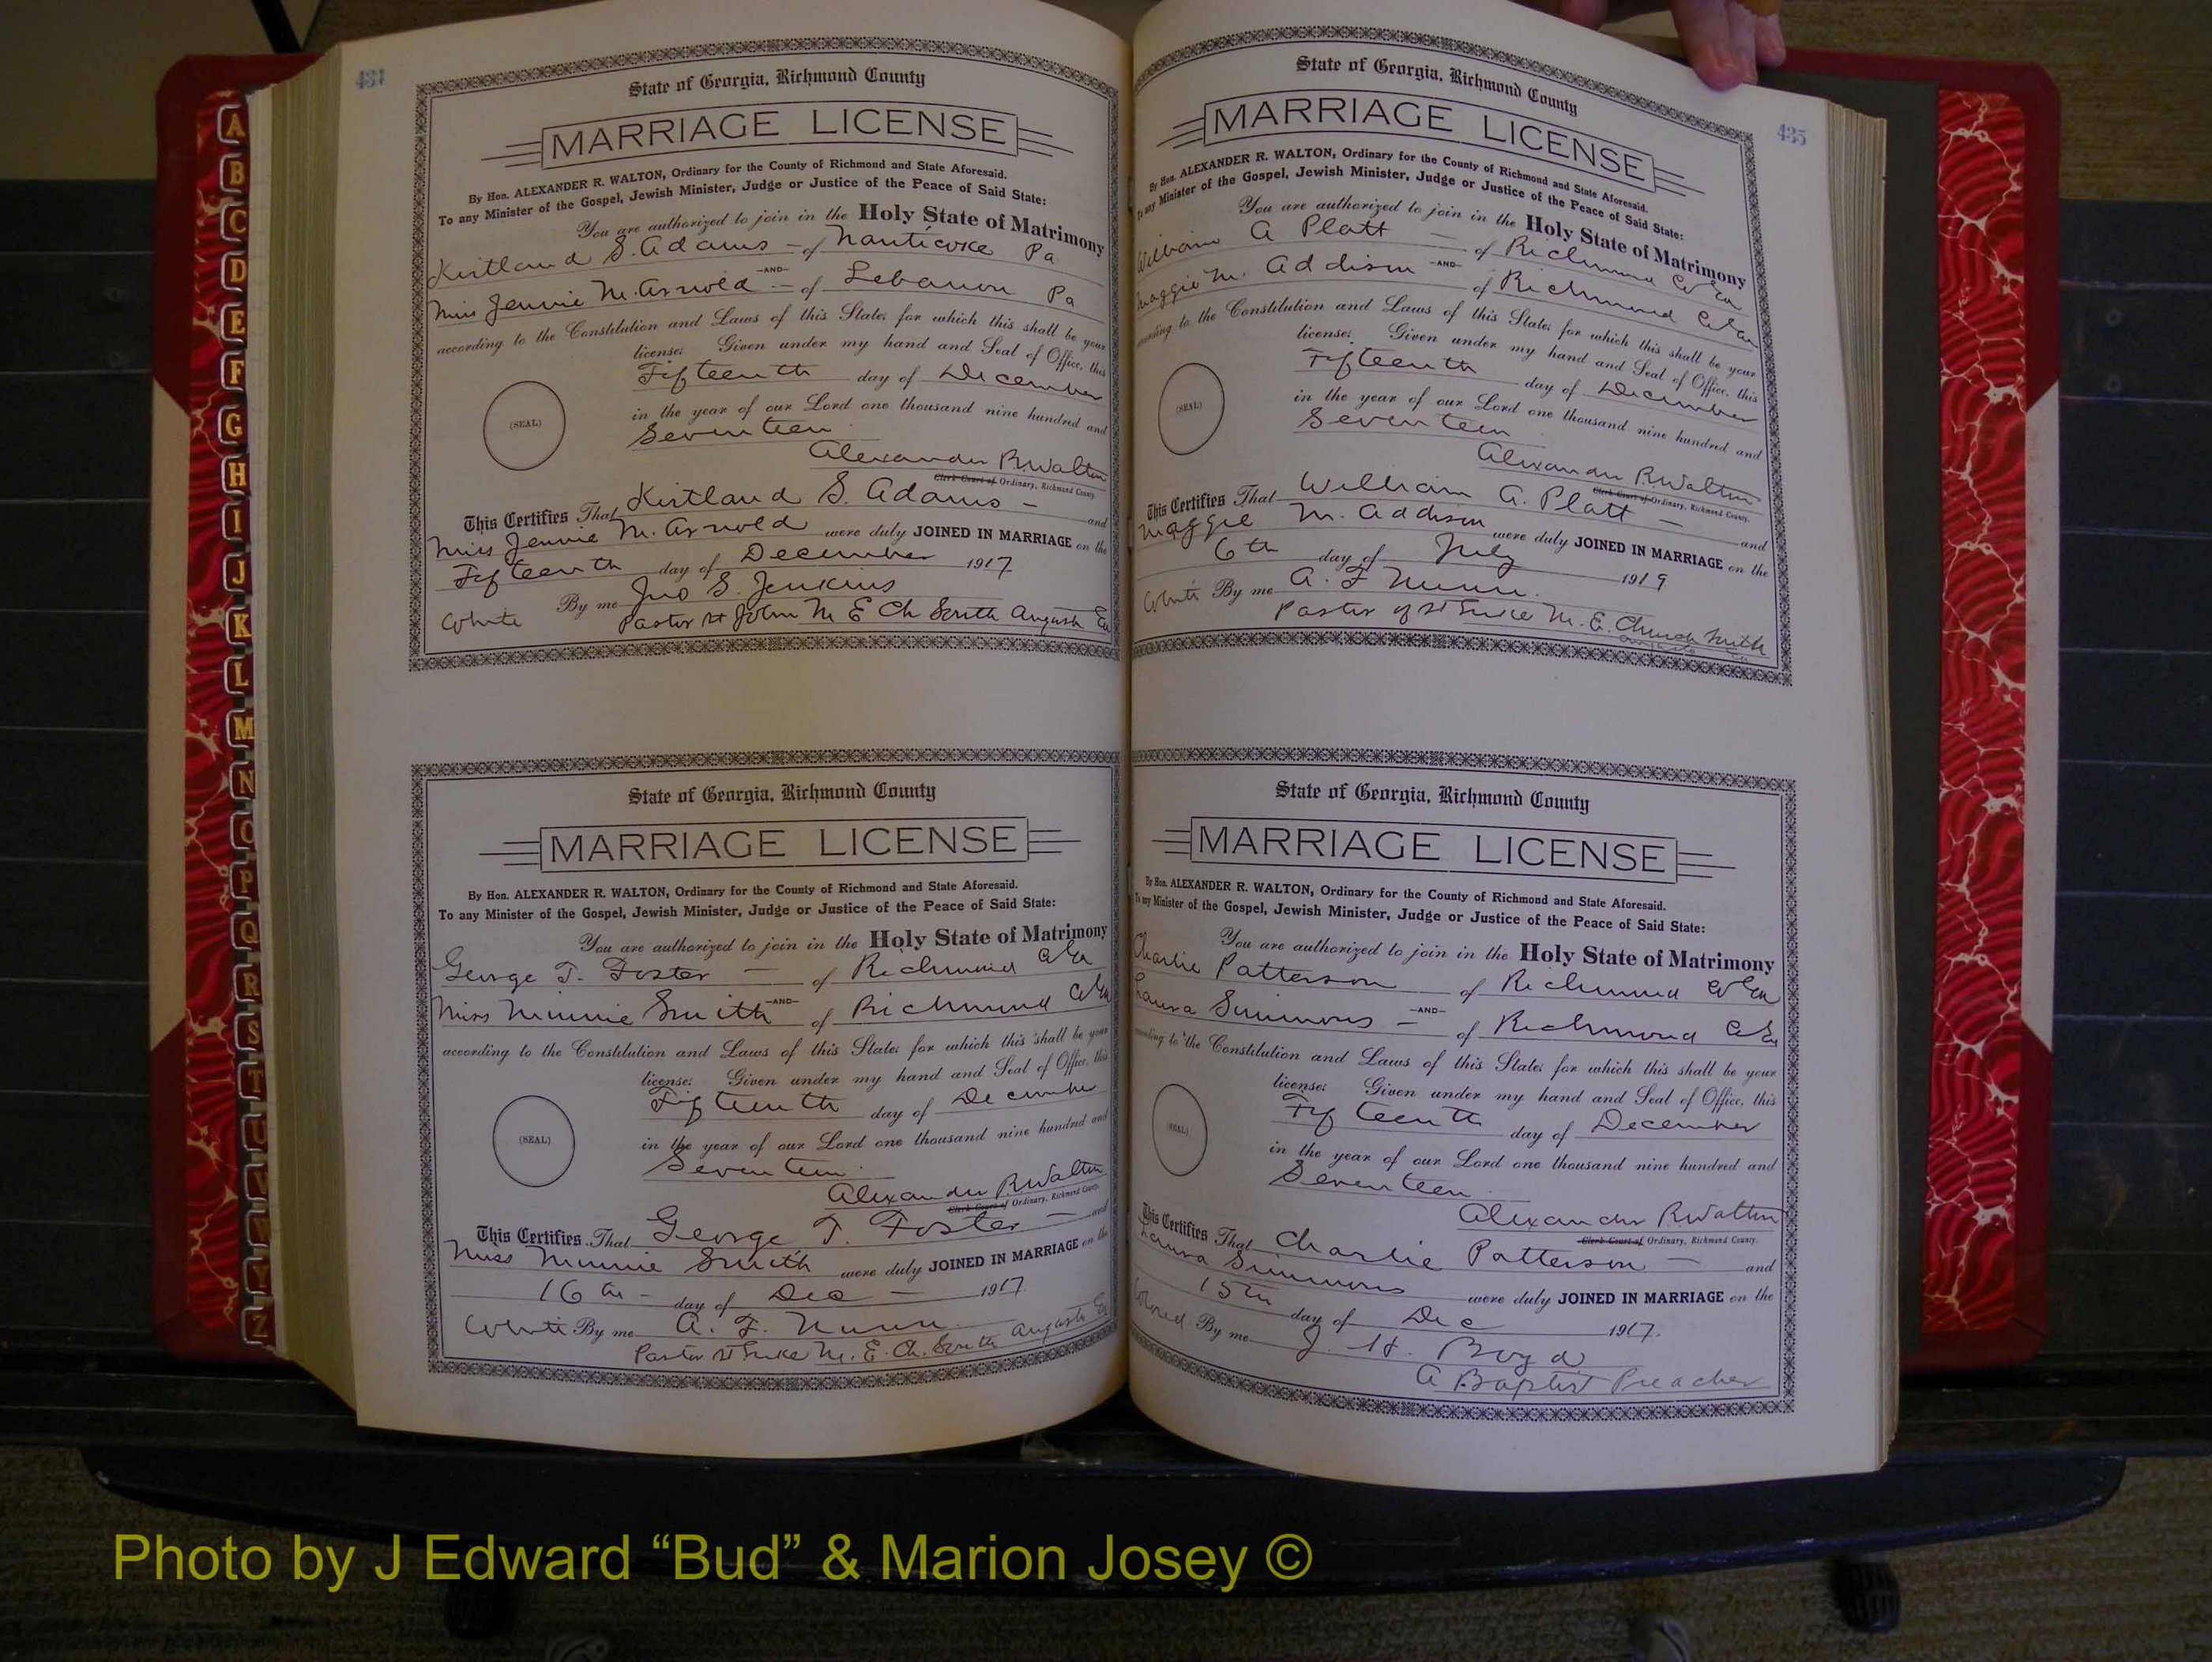 434
State of Georgia, Richmond County
MARRIAGE LICENSE
By Hon. ALEXANDER R. WALTON, Ordinary for the County of Richmond and State Aforesaid.
To any Minister of the Gospel, Jewish Minister, Judge or Justice of the Peace of Said State:
You are authorized to join in the Holy State of Matrimony
Kirtland S. Adams — of Nanticoke Pa
—AND—
Miss Jennie M. Arnold — of Lebanon Pa
according to the Constitution and Laws of this State; for which this shall be your
license; Given under my hand and Seal of Office, this
Fifteenth day of December
(SEAL)
in the year of our Lord one thousand nine hundred and
Seventeen
Alexander R. Walton
Clerk Court of Ordinary, Richmond County.
This Certifies That Kirtland S. Adams — and
Miss Jennie M. Arnold were duly JOINED IN MARRIAGE on the
Fifteenth day of December 1917
White By me Jno S. Jenkins
Pastor St John M E Ch South Augusta Ga
State of Georgia, Richmond County
MARRIAGE LICENSE
By Hon. ALEXANDER R. WALTON, Ordinary for the County of Richmond and State Aforesaid.
To any Minister of the Gospel, Jewish Minister, Judge or Justice of the Peace of Said State:
You are authorized to join in the Holy State of Matrimony
George T. Foster — of Richmond Co Ga
—AND—
Miss Minnie Smith of Richmond Co Ga
according to the Constitution and Laws of this State; for which this shall be your
license; Given under my hand and Seal of Office, this
Fifteenth day of December
(SEAL)
in the year of our Lord one thousand nine hundred and
Seventeen
Alexander R. Walton
Clerk Court of Ordinary, Richmond County.
This Certifies That George T. Foster — and
Miss Minnie Smith were duly JOINED IN MARRIAGE on the
16th — day of Dec — 1917.
White By me A. F. Nunn
Pastor St Luke M. E. Ch. South Augusta Ga
435
State of Georgia, Richmond County
MARRIAGE LICENSE
By Hon. ALEXANDER R. WALTON, Ordinary for the County of Richmond and State Aforesaid.
To any Minister of the Gospel, Jewish Minister, Judge or Justice of the Peace of Said State:
You are authorized to join in the Holy State of Matrimony
William A Platt — of Richmond Co Ga
—AND—
Maggie M. Addison of Richmond Co Ga
according to the Constitution and Laws of this State; for which this shall be your
license; Given under my hand and Seal of Office, this
Fifteenth day of December
(SEAL)
in the year of our Lord one thousand nine hundred and
Seventeen
Alexander R. Walton
Clerk Court of Ordinary, Richmond County.
This Certifies That William A. Platt — and
Maggie M. Addison were duly JOINED IN MARRIAGE on the
6th day of July 1919
White By me A. F Nunn.
Pastor of St Luke M. E. Church South
Augusta Ga
State of Georgia, Richmond County
MARRIAGE LICENSE
By Hon. ALEXANDER R. WALTON, Ordinary for the County of Richmond and State Aforesaid.
To any Minister of the Gospel, Jewish Minister, Judge or Justice of the Peace of Said State:
You are authorized to join in the Holy State of Matrimony
Charlie Patterson of Richmond Co Ga
—AND—
Laura Simmons — of Richmond Co Ga
according to the Constitution and Laws of this State; for which this shall be your
license; Given under my hand and Seal of Office, this
Fifteenth day of December
(SEAL)
in the year of our Lord one thousand nine hundred and
Seventeen
Alexander R. Walton
Clerk Court of Ordinary, Richmond County.
This Certifies That Charlie Patterson — and
Laura Simmons were duly JOINED IN MARRIAGE on the
15th day of Dec 1917.
Colored By me J. H. Boyd
A Baptist Preacher
A
B
C
D
E
F
G
H
I
J
K
L
M
N
O
P
Q
R
S
T
U
V
W
Y
Z
Photo by J Edward “Bud” & Marion Josey ©